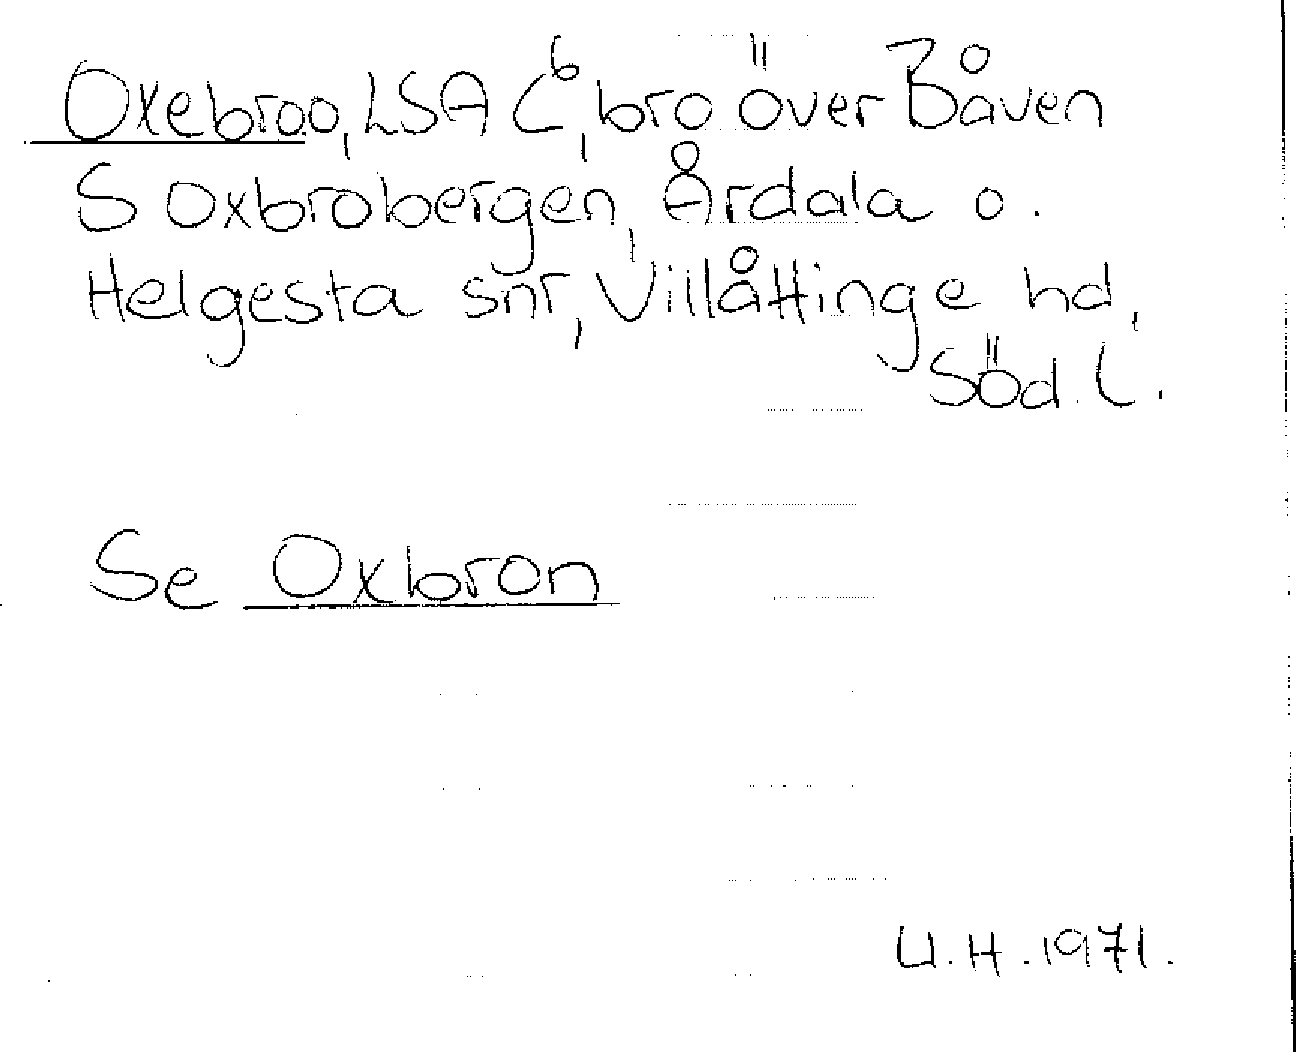 Oxebroo, LSA C6, bro över Båven
S Oxbrobergen, Årdala o.
Helgesta snr, Villåttinge hd,
Söd. L.
Se Oxbron
U.H. 1971.